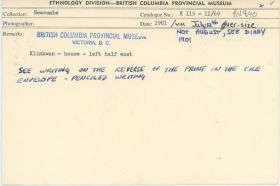 ETHNOLOGY DIVISION—BRITISH COLUMBIA PROVINCIAL MUSEUM
Collection: Newcombe Catalogue No.: E 115 - 22/69 PN 940
Photographer: Date: 1901 / July over-size
Remarks: BRITISH COLUMBIA PROVINCIAL MUSEUM
VICTORIA, B. C.
NOT AUGUST, SEE DIARY
1901
Klinkwan - house - left half east
SEE WRITING ON THE REVERSE OF THE PRINT IN THE FILE
ENVELOPE - PENCILED WRITING